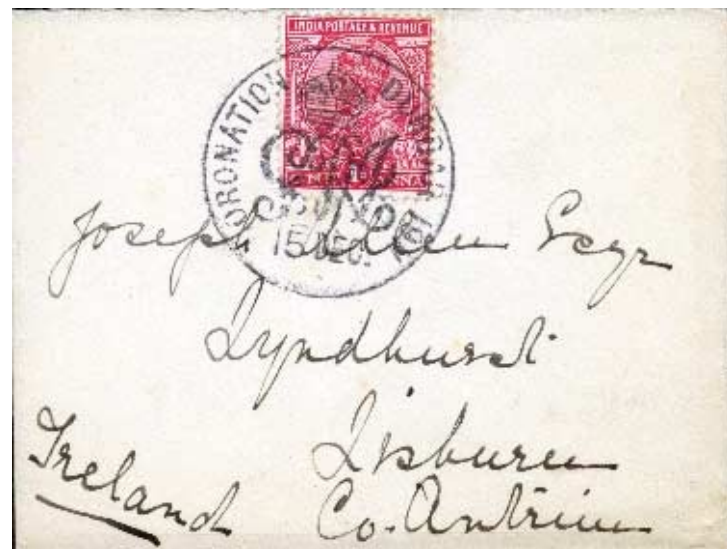 INDIA POSTAGE & REVENUE
CORONATION DURBAR 1911
15 DEC.
Joseph Allen Esqr
Lyndhurst
Lisburn
Co. Antrim
Ireland